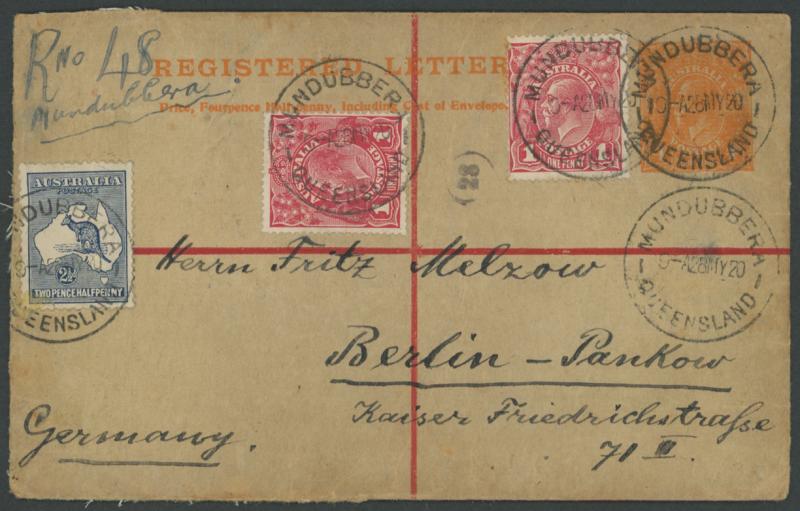 R No 48
Mundubbera
REGISTERED LETTER
Price, Fourpence Halfpenny, Including Cost of Envelope.
MUNDUBBERA
QUEENSLAND
AUSTRALIA
1
ONE PENNY
MUNDUBBERA
9-A28MY20
QUEENSLAND
MUNDUBBERA
QUEENSLAND
AUSTRALIA
(28)
AUSTRALIA
POSTAGE
2½
TWO PENCE HALFPENNY
MUNDUBBERA
QUEENSLAND
MUNDUBBERA
9-A28MY20
QUEENSLAND
Herrn Fritz Melzow
Berlin - Pankow
Kaiser Friedrichstraße
71 II
Germany.